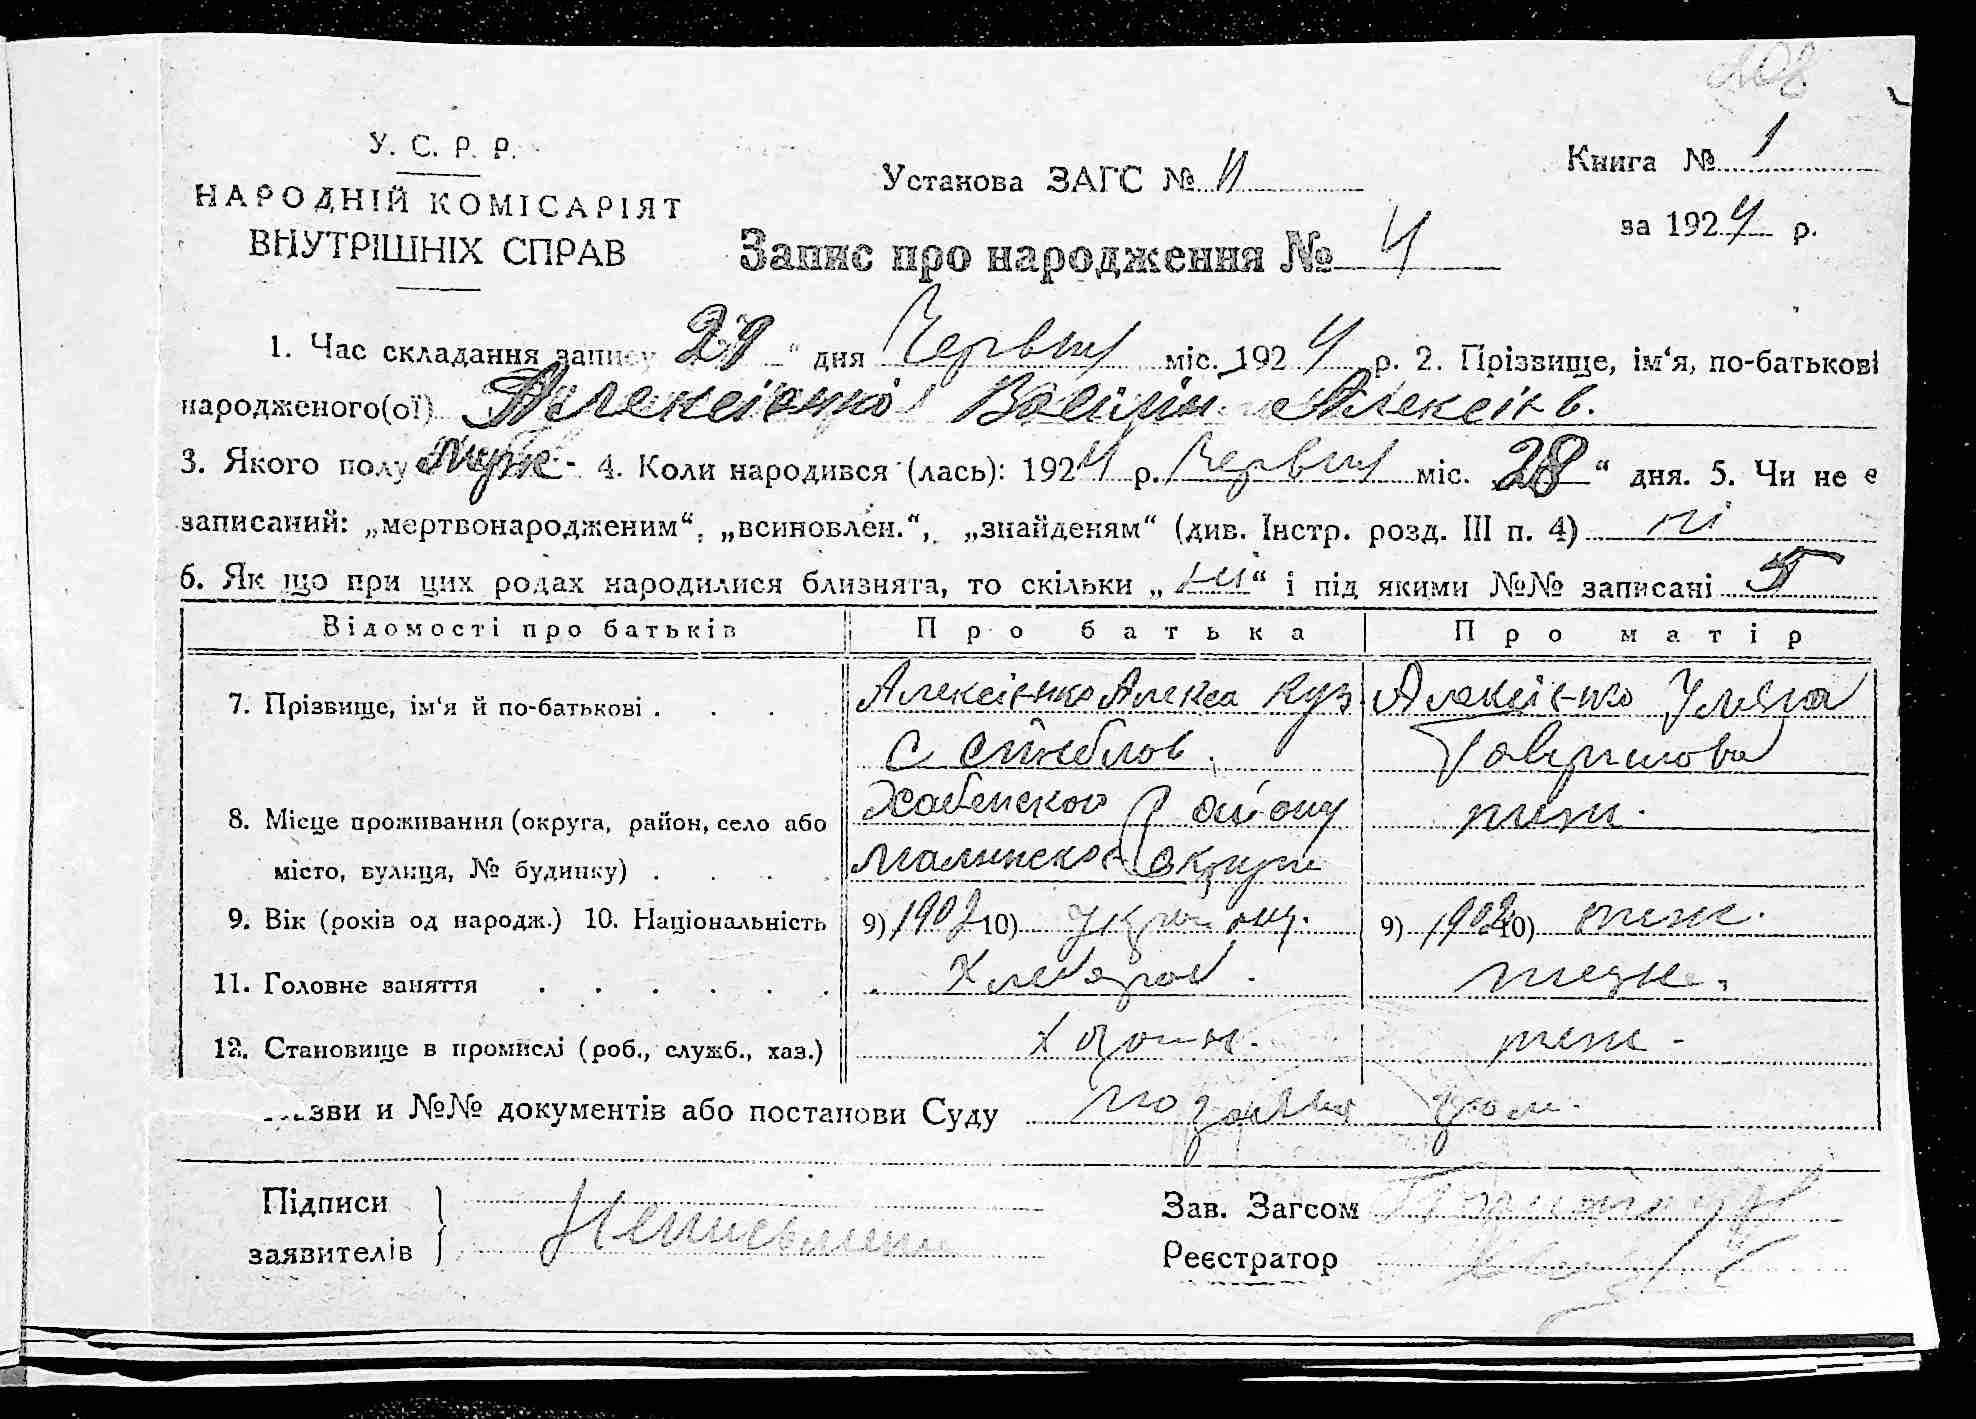 У. С. Р. Р.
НАРОДНІЙ КОМІСАРІЯТ
ВНУТРІШНІХ СПРАВ
Установа ЗАГС №
Книга № 1
за 1924 р.
Запис про народження № 4
1. Час складання запису 29 “ дня Червня міс. 1924 р. 2. Прізвище, ім‘я, по-батькові
народженого(ої) Алексієнко Алексієв.
3. Якого полу муж - 4. Коли народився (лась): 1924 р. Червня міс. 28 “ дня. 5. Чи не є
записаний: „мертвонародженим“, „всиновлен.“, „знайденям“ (див. Інстр. розд. III п. 4) ні
6. Як що при цих родах народилися близнята, то скільки „ “ і під якими №№ записані 5
Відомості про батьків Про батька Про матір
7. Прізвище, ім‘я й по-батькові . . . . Алексієнко Алекса Куз Алексієнко Уляна
Гаврилова
8. Місце проживання (округа, район, село або Хабенского Району
місто, вулиця, № будинку) . . . . Малинског Округи
9. Вік (рохів од народж.) 10. Національність 9) 1902 10) 9) 1902 10) тиж.
11. Головне заняття . . . . . . Хлебороб.
12. Становище в промислі (роб., служб., хаз.) Хозяин.
зви и №№ документів або постанови Суду
Підписи
заявителів
Неписьмен
Зав. Загсом
Реєстратор